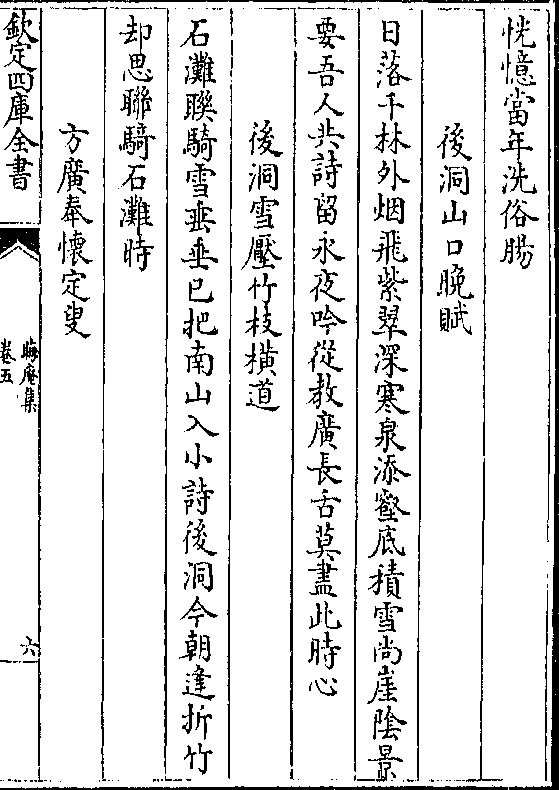 恍憶當年洗俗腸
後洞山口晚賦
日落千林外烟飛紫翠深寒泉添壑底積雪尚崖陰景
要吾人共詩留永夜吟從教廣長舌莫盡此時心
後洞雪壓竹枝橫道
石灘聨騎雪垂垂已把南山入小詩後洞今朝逢折竹
却思聯騎石灘時
方廣奉懷定叟
欽定四庫全書
晦庵集
卷五
六